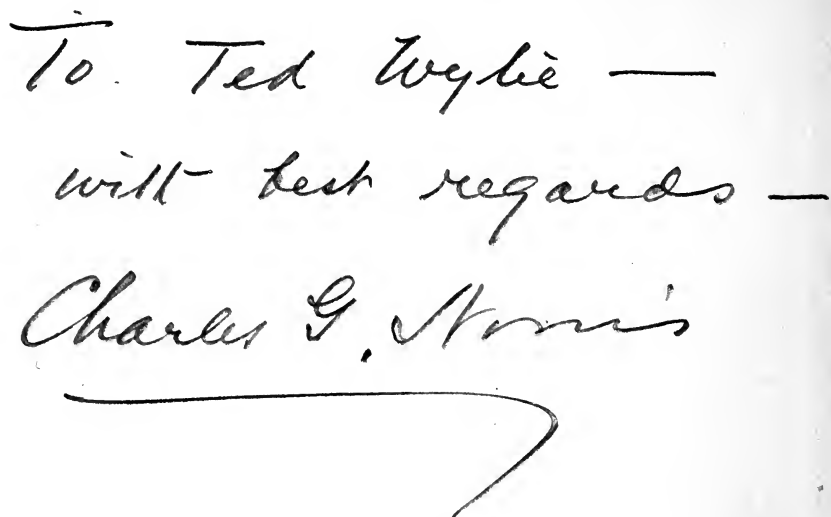 To Ted Wylie —
with best regards —
Charles G. Norris